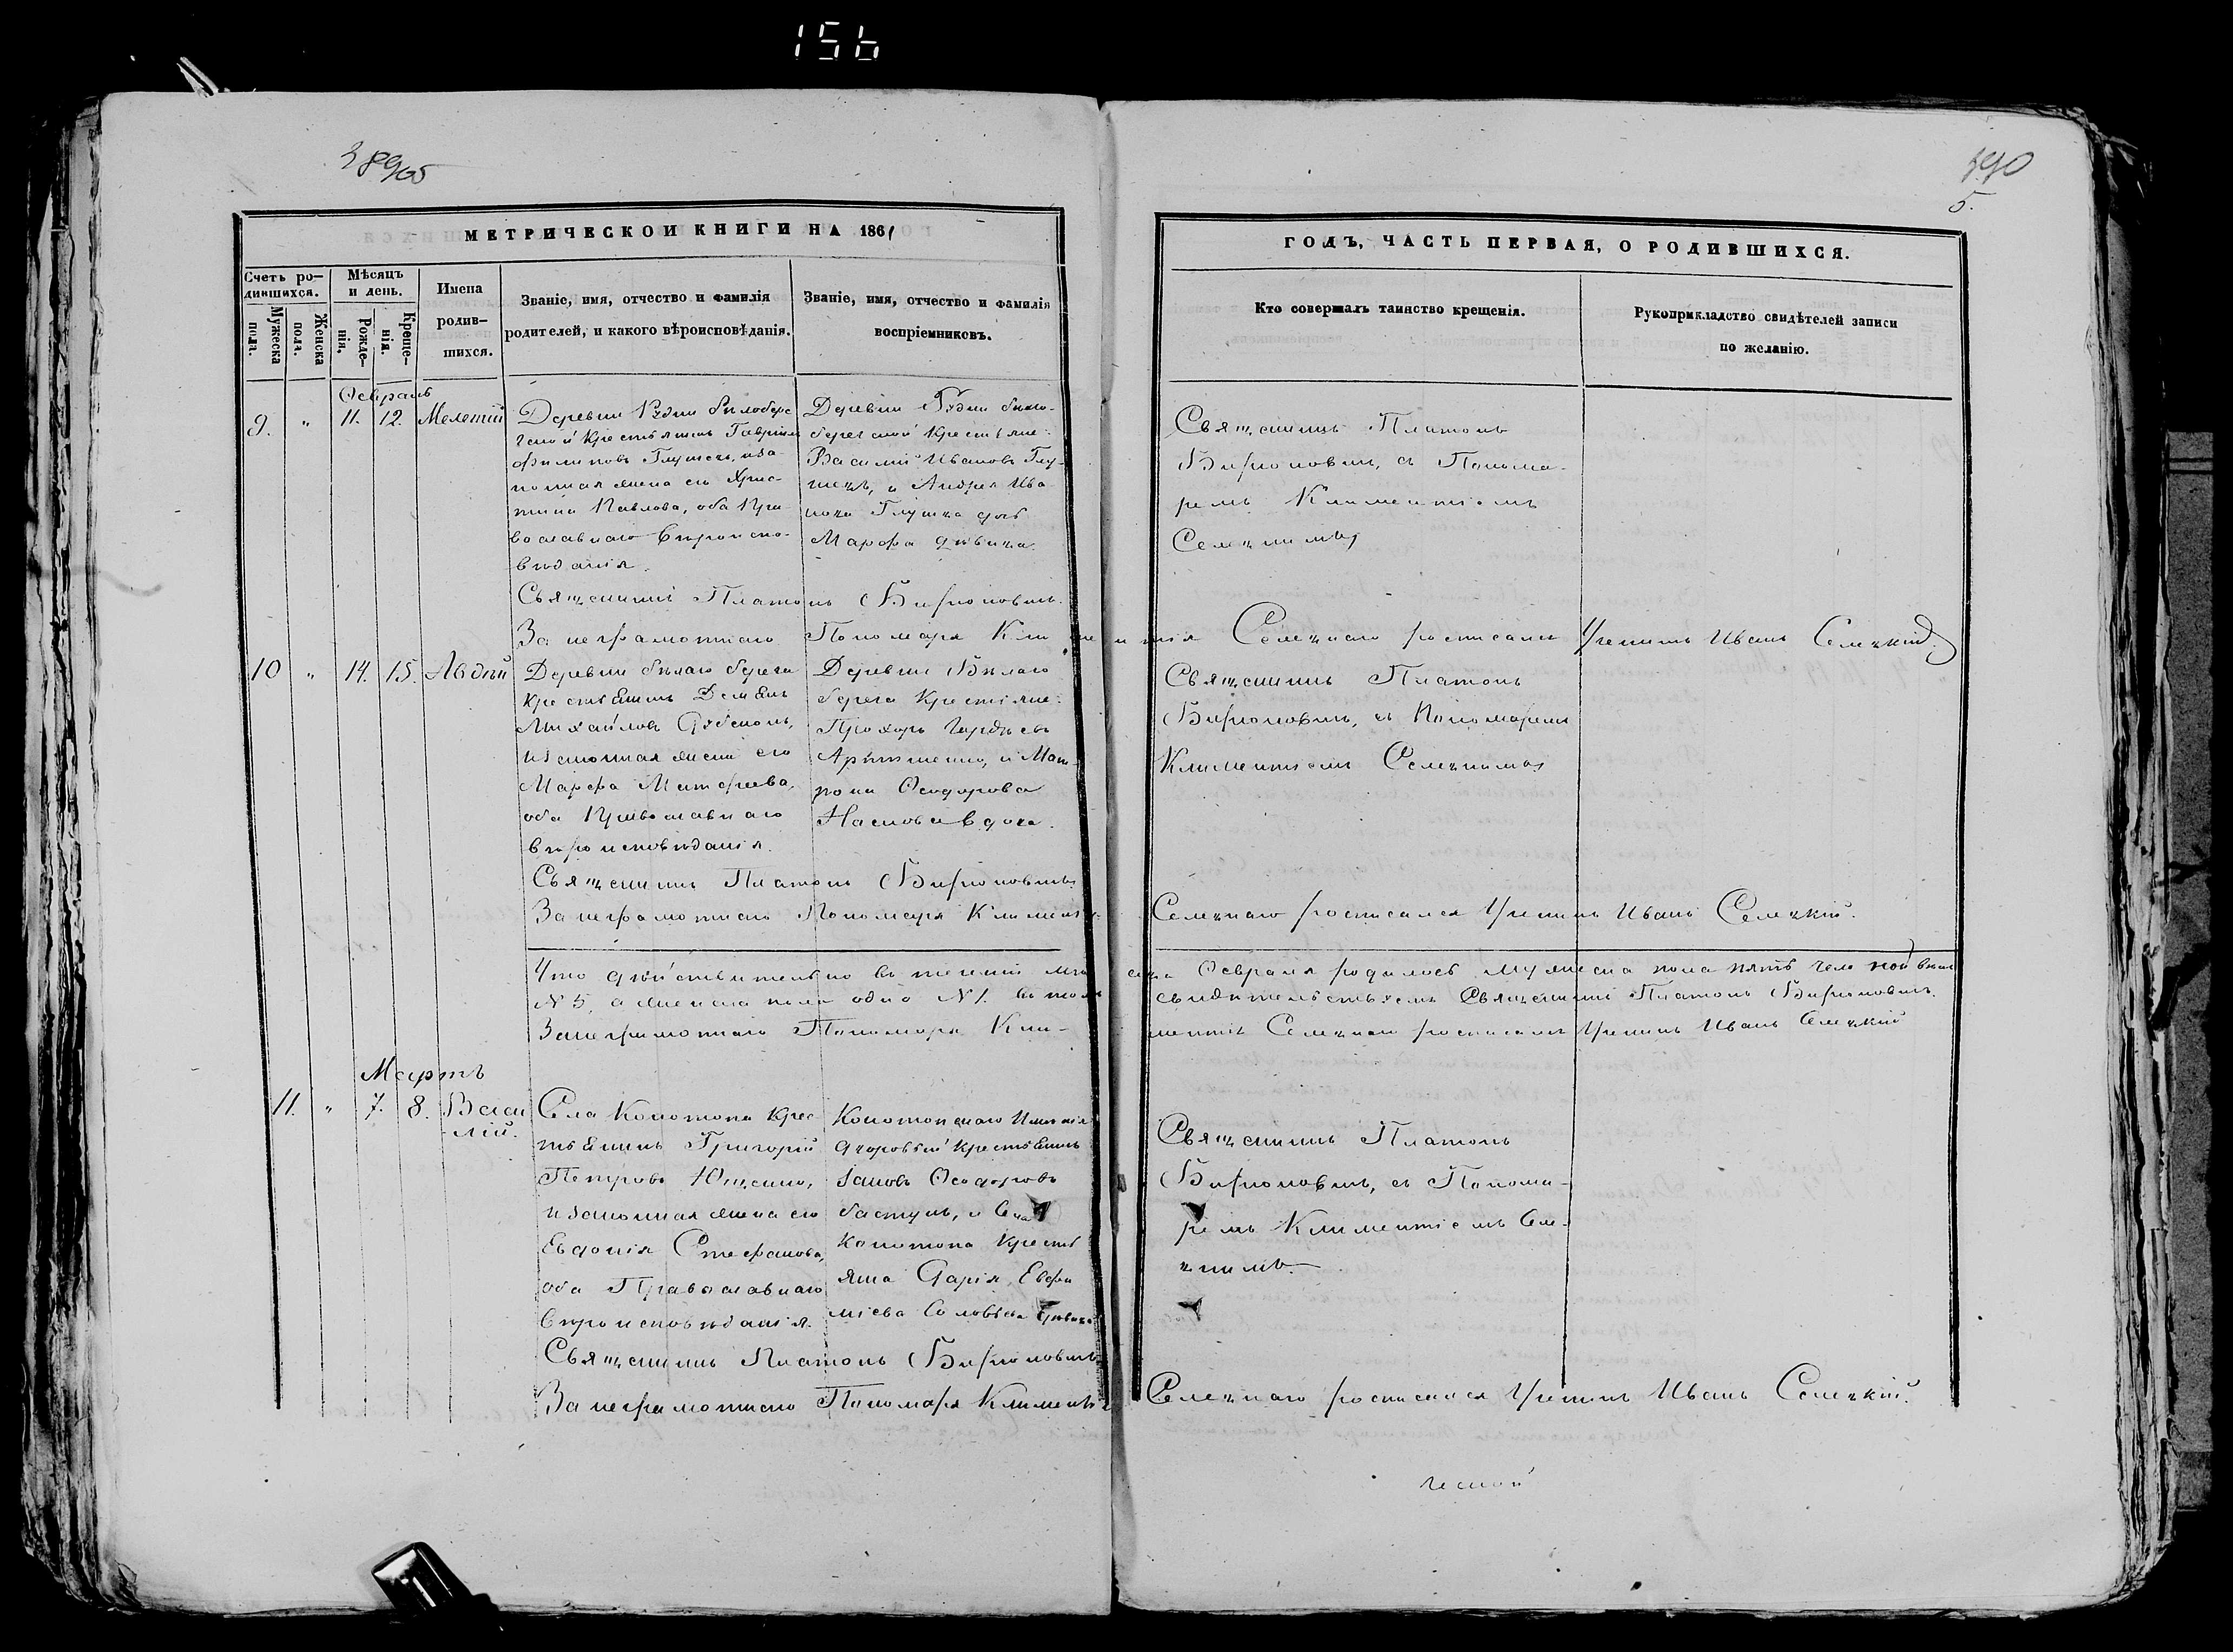 156
490
5.
МЕТРИЧЕСКОЙ КНИГИ НА 1861
ГОДЪ, ЧАСТЬ ПЕРВАЯ, О РОДИВШИХСЯ.
Счетъ ро-
дившихся.
Мужеска пола.
Женска пола.
Мѣсяцъ
и день.
Рожде-
нія.
Креще-
нія.
Имена
родив-
шихся.
Званіе, имя, отчество и фамилія
родителей, и какого вѣроисповѣданія.
Званіе, имя, отчество и фамилія
воспріемниковъ.
Кто совершалъ таинство крещенія.
Рукоприкладство свидѣтелей записи
по желанію.
Февраль
9. " 11. 12. Мелетій
Деревни Рудни Бѣлобере
жской Крестьянинъ Гавріилъ
Филиповъ Глушецъ, и за-
конная жена его Хрис-
тина Павлова, оба Пра-
вославнаго вѣроиспо-
вѣданія.
Деревни Рудни бѣло-
бережской Крестьяне:
Василій Ивановъ Глу-
шецъ, и Андрея Ива
нова Глушца дочь
Марфа дѣвица.
Священникъ Платонъ
с Понома-
ремъ Климентіемъ
Селецкимъ
Священникъ Платонъ
За неграмотнаго Пономаря Климентія Селецкаго росписался Иванъ Селецкій.
10 " 14. 15. Авдѣй
Деревни бѣлаго берега
Крестьянинъ Демьянъ
Михайловъ
и законная жена его
Марфа Матфеева,
оба Православнаго
вѣроисповѣданія.
Деревни Бѣлаго
берега Крестьяне:
Прохоръ Гордѣевъ
и Мат-
рона Феодорова
вдова.
Священникъ Платонъ
съ Пономаремъ
Климентіемъ Селецкимъ
Священникъ Платонъ
За неграмотнаго Пономаря Климентія Селецкаго росписался Иванъ Селецкій.
Что дѣйствительно въ теченіи мѣсяца Февраля родилось мужеска пола пять
N 5, а женска пола одно N 1. въ томъ свидѣтельствуемъ Священникъ Платонъ
За неграмотнаго Пономаря Климентія Селецкаго росписался Иванъ Селецкій
Мартъ
11. " 7. 8. Васи
-лій.
Села Конотопа Крес
тьянинъ Григорій
Петровъ Ющенко,
и законная жена его
Евдокія Стефанова,
оба Православнаго
вѣроисповѣданія.
Конотопскаго Имѣнія
дворовый Крестьянинъ
Іаковъ Феодоровъ
и села
Конотопа Кресть
янка Дарія Евфи
міева дѣвица
Священникъ Платонъ
съ Понома-
ремъ Климентіемъ Селе-
цкимъ.
Священникъ Платонъ
За неграмотнаго Пономаря Климентія Селецкаго росписался Иванъ Селецкій.